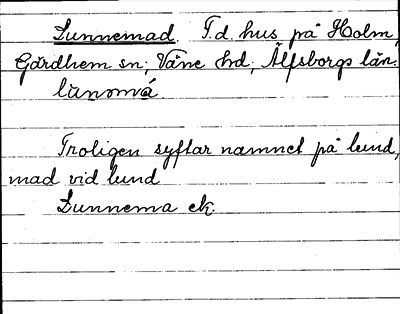 Lunnemad. F.d. hus på Holm,
Gärdhem sn; Väne hd; Älfsborgs län.
lùnomá.
Troligen syftar namnet på lund,
mad vid lund
Lunnema ek.